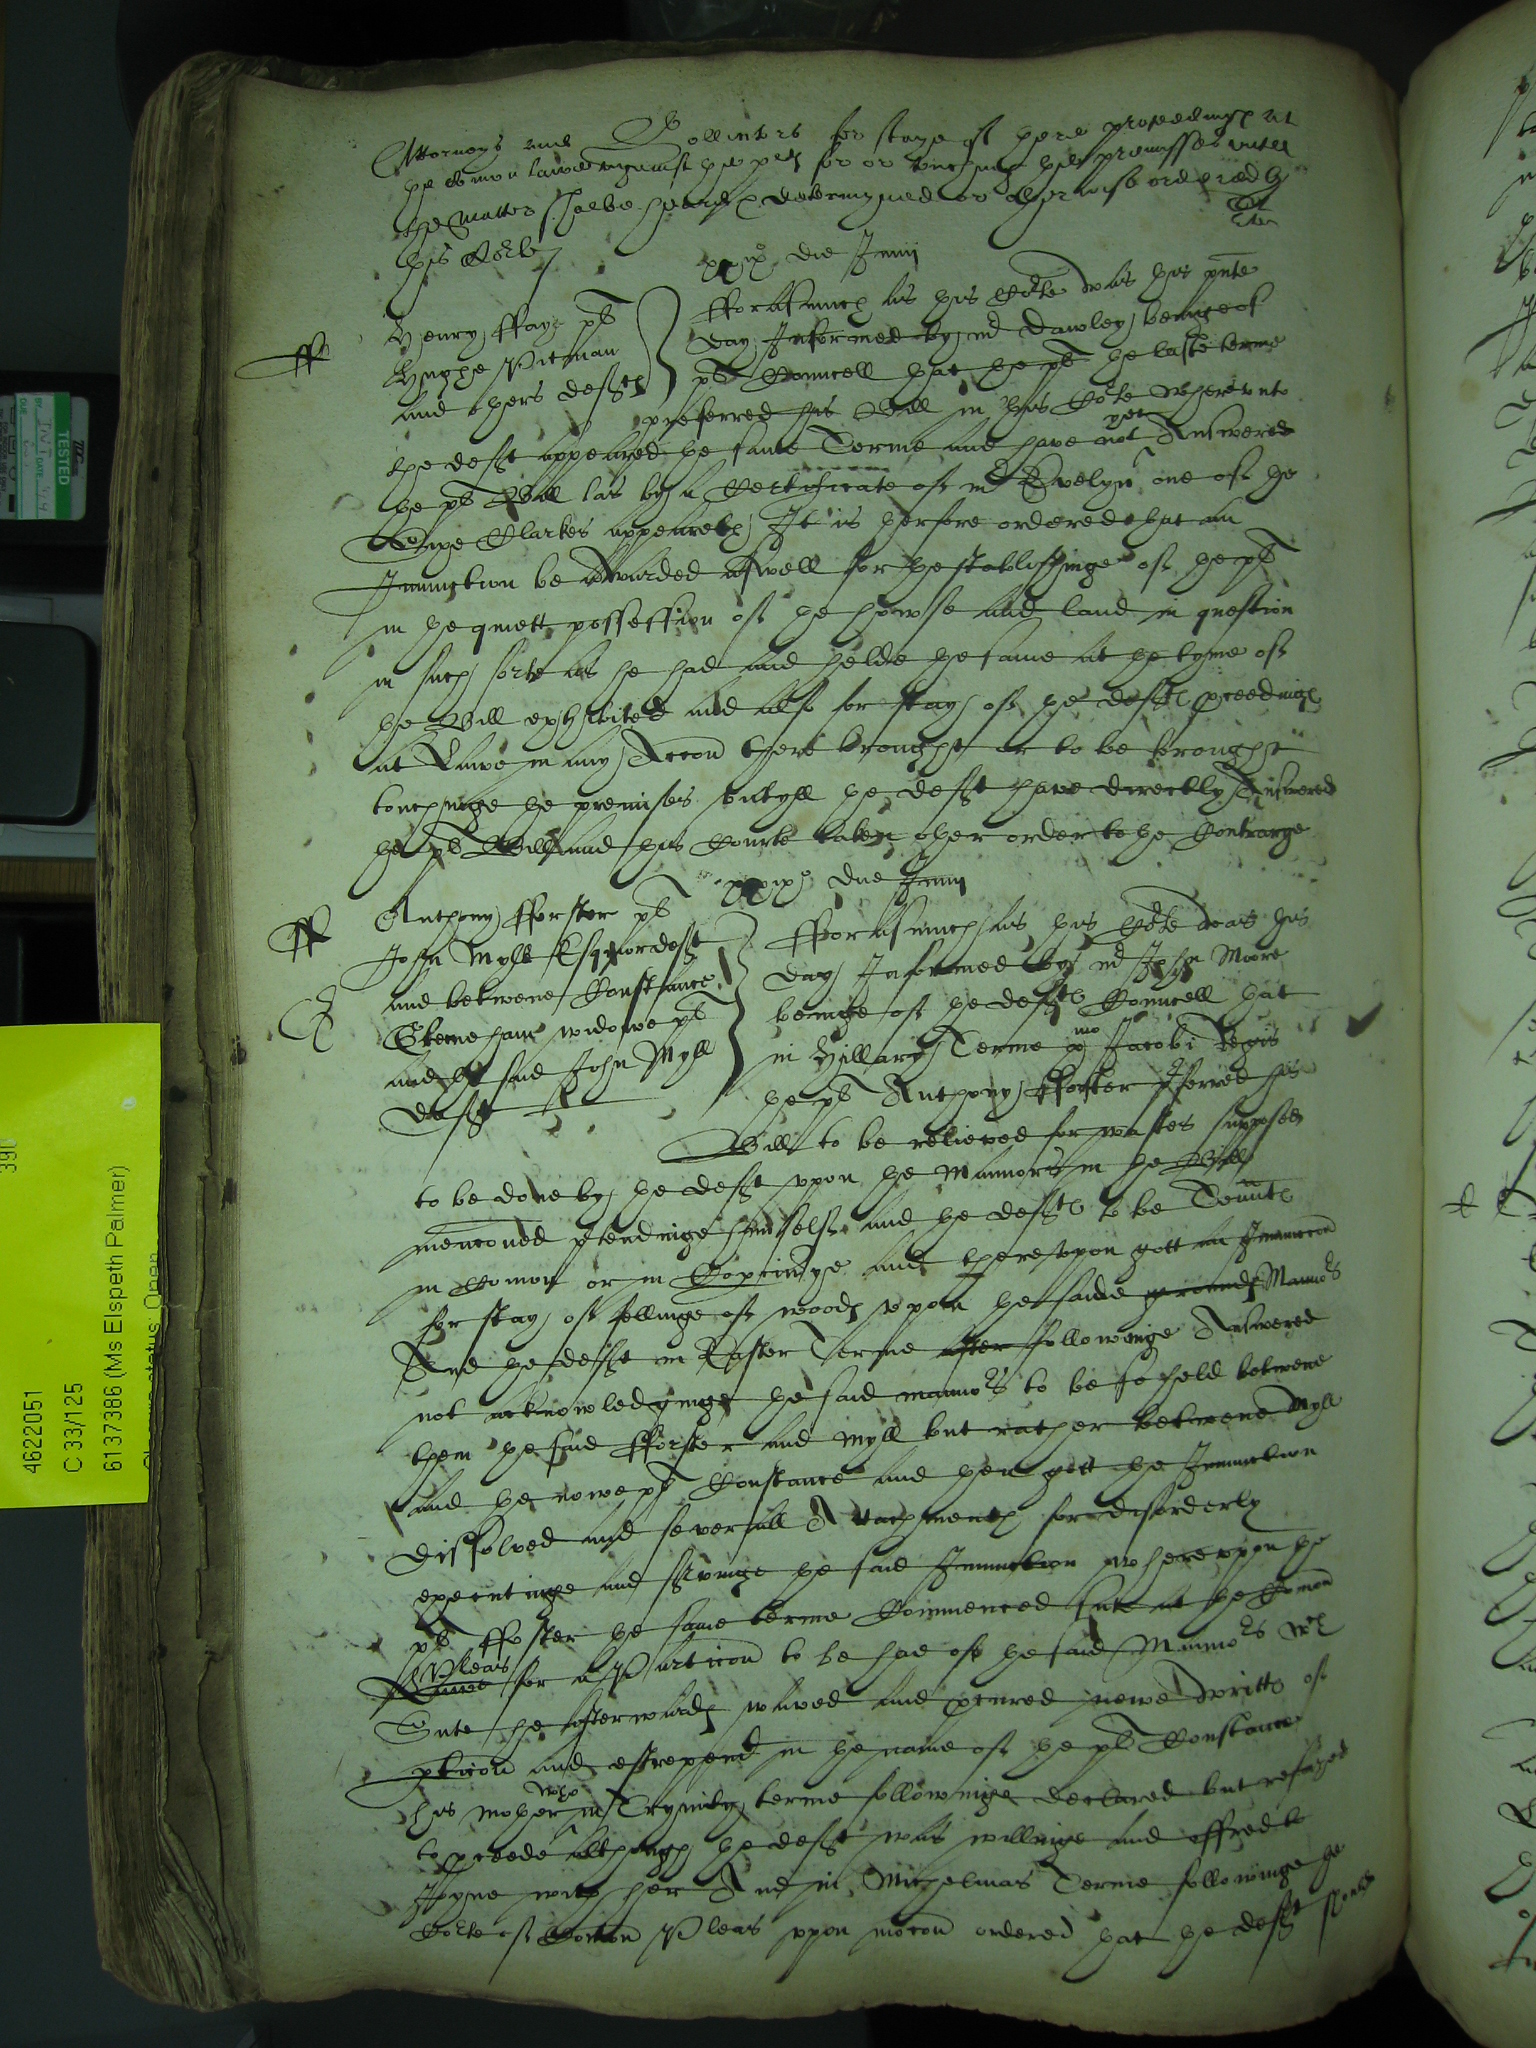 Attorneys and Sollicitors for staye of there proceedinges at
the comon lawe against the plt for or touchinge the premisses untill
the matter shalbe heard &amp; determyned or otherwise ordered by
this Corte
xxix die Junii
ff
Henry ffay plt
Pitman
and others defts
fforasmuch as this Corte was this pnte
day Informed by mr Dawley beinge of
plts Councell that the plt the laste terme
preferred his Bill in this Corte whereunto
the deft appeared the same Terme and have not yet Answered
the plts Bill as by a Certificate of mr Evelyn one of the
Sixe Clarkes appeareth It is therfore ordered that an
Iniunction be Awarded aswell for the stablishinge of the plt
in the quiett possession of the howse and land in question
in such sorte as he had and helde the same at the tyme of
the Bill exhibited and also for stay of the defts pceedinges
at Lawe in any Accon there brought or to be brought
touchinge the premises untyll the deft have directly Answered
the plts Bill and this Courte taken other order to the Contrarye
xxix die Junii
ff
Anthony fforster plt
John Myll Esquior deft
and betwene Constance
widowe plt
and the said John Myll
deft
fforasmuch as this Corte was this
day Informed by mr John Moore
beinge of the defts Councell that
in Hillary Terme xmo Jacobi Regis
the plt Anthony fforster pferred his
Bill to be relieved for wastes supposed
to be done by the deft uppon the Mannors in the Bill
menconed ptendinge himself and the deft to be Tennts
in Comon or in Copercinye and thereuppon gott an Iniunccon
for stay of fellinge of woodes uppon the saide groundes Mannors
And the deft in Easter Terme after followinge Answered
not acknowledginge the said mannors to be so held betwene
them the said fforster and Myll but rather betwene Myll
and the nowe plt Constance and then gott the Iniunction
dissolved and severall Attachmentes for disorderly
executinge and servinge the said Iniunction whereuppon the
plt fforster the same terme Commenced sute at the Comon
Pleas
Lawe for a Particon to be had of the said Mannors wch
Sute he afterwardes waved and pcured newe writts of
pticon and estrepemt in the name of the plt Constance
his mother who in Trynity terme followinge declared but refused
to pceede although the deft was willinge and offred to
Joyne with her And in Michelmas Terme followinge the
Corte of Comon Pleas uppon mocon ordered that the deft should
390
4622051
C 33/125
6137386 (Ms Elspeth Palmer)
Closure status: Open
TESTED